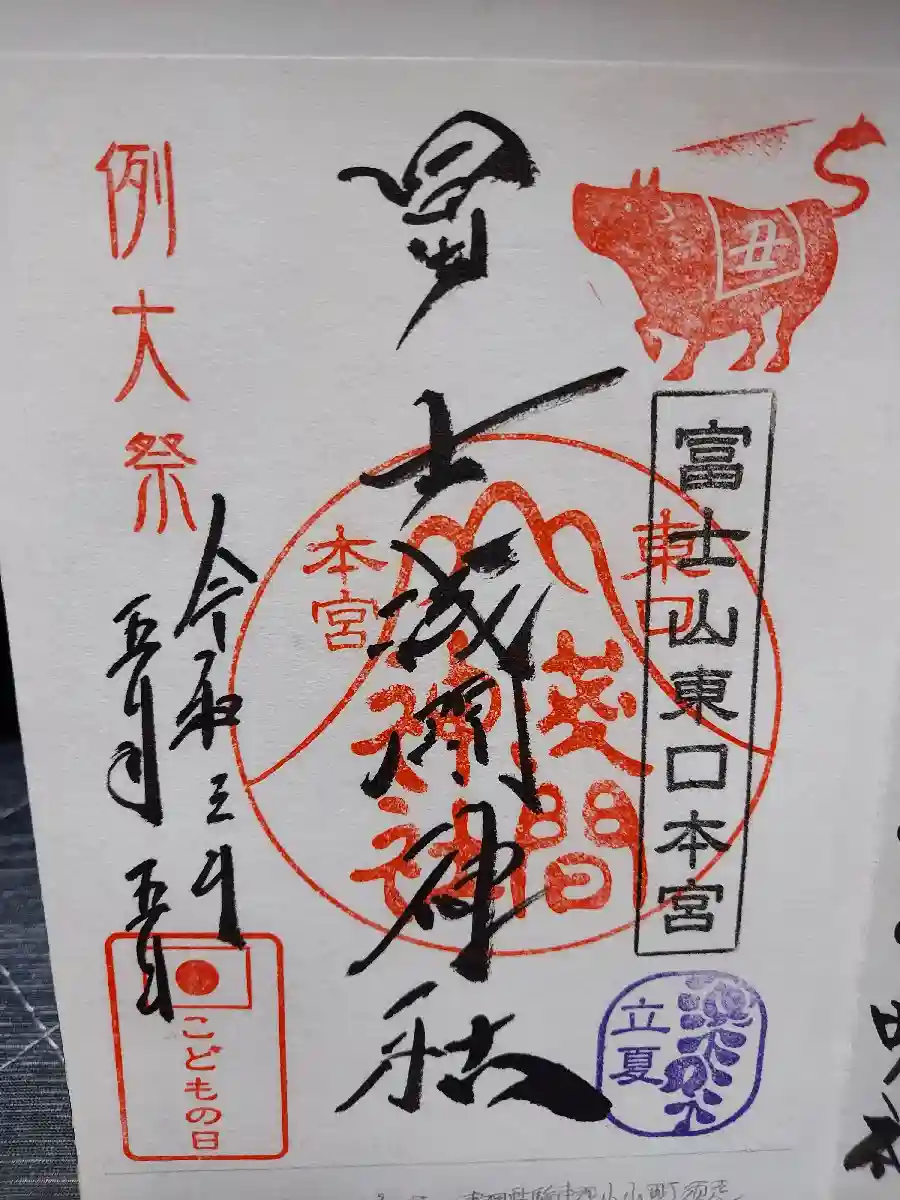 丑
富士山東口本宮
東口
本宮
冨士浅間神社
浅間
神社
例大祭
令和三年
五月五日
立夏
こどもの日